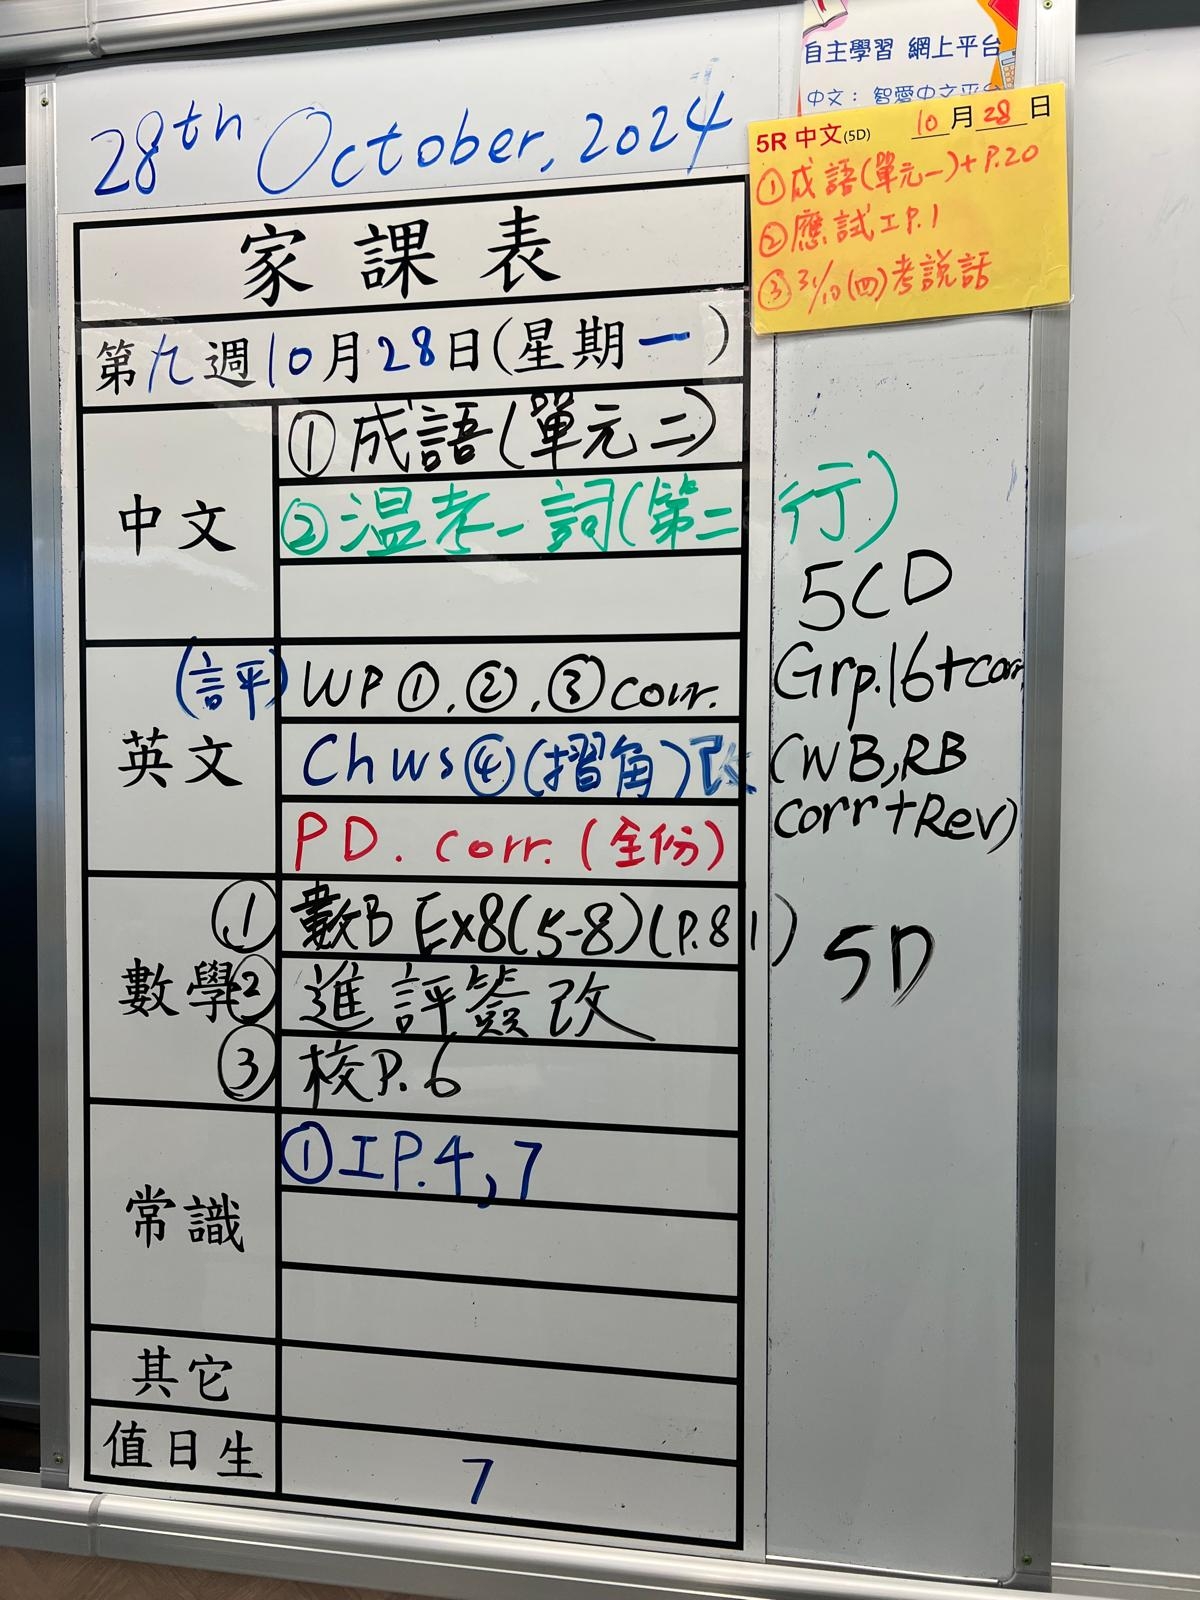 28th October, 2024
家課表
第九週10月28日(星期一)
中文
①成語(單元二)
②温考一詞(第二行)
英文
(評) WP①,②,③corr.
Ch WS④(摺角)改
PD. corr. (全份)
數學
① 數B Ex8(5-8)(P.81)
② 進評簽改
③ 校P.6
常識
①工P.4,7
其它
值日生
7
自主學習 網上平台
中文： 智愛中文平台
5R 中文(5D) 10月28日
①成語(單元一)+P.20
②應試工P.1
③31/10(四)考說話
5CD
Grp.16+corr
(WB,RB
corr+Rev)
5D